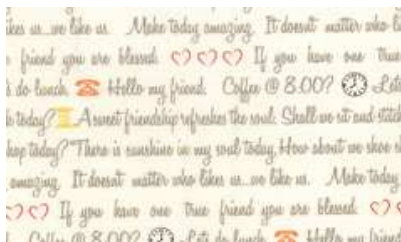 likes us...we like us. Make today amazing. It doesnt matter who li
friend you are blessed. If you have one true
s do lunch. Hello my friend. Coffee @ 8:00? Lets
today? A sweet friendship refreshes the soul. Shall we sit and stitch
hop today? There is sunshine in my soul today. How about we shoe s
amazing. It doesnt matter who likes us...we like us. Make today
If you have one true friend you are blessed.
Coffee @ 8:00? Lets do lunch. Hello my friend